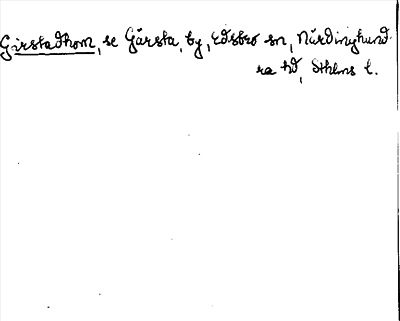 Girstadhom, se Gårsta, by, Edsbro sn, Närdinghund-
ra hd, Sthlms l.